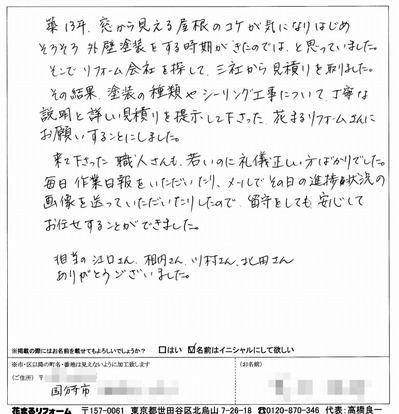 築13年、窓から見える屋根のコケが気になりはじめ
そろそろ外壁塗装をする時期がきたのでは、と思っていました。
そこでリフォーム会社を探して、三社から見積りを取りました。
その結果、塗装の種類やシーリング工事について、丁寧な
説明と詳しい見積りを提示して下さった、花まるリフォームさんに
お願いすることにしました。
来て下さった職人さんも、若いのに礼儀正しい方ばかりでした。
毎日作業日報をいただいたり、メールでその日の進捗状況の
画像を送っていただいたりしたので、留守をしても安心して
お任せすることができました。
担当の江口さん、相内さん、川村さん、北田さん
ありがとうございました。
※掲載の際にはお名前を載せてもよろしいでしょうか? □はい ☑名前はイニシャルにして欲しい
※市・区以降の町名・番地は見えないように加工致します
(ご住所) 〒
(お名前)
国分寺市
花まるリフォーム 〒157-0061 東京都世田谷区北烏山7-26-18 ☎0120-870-346 代表:高橋良一